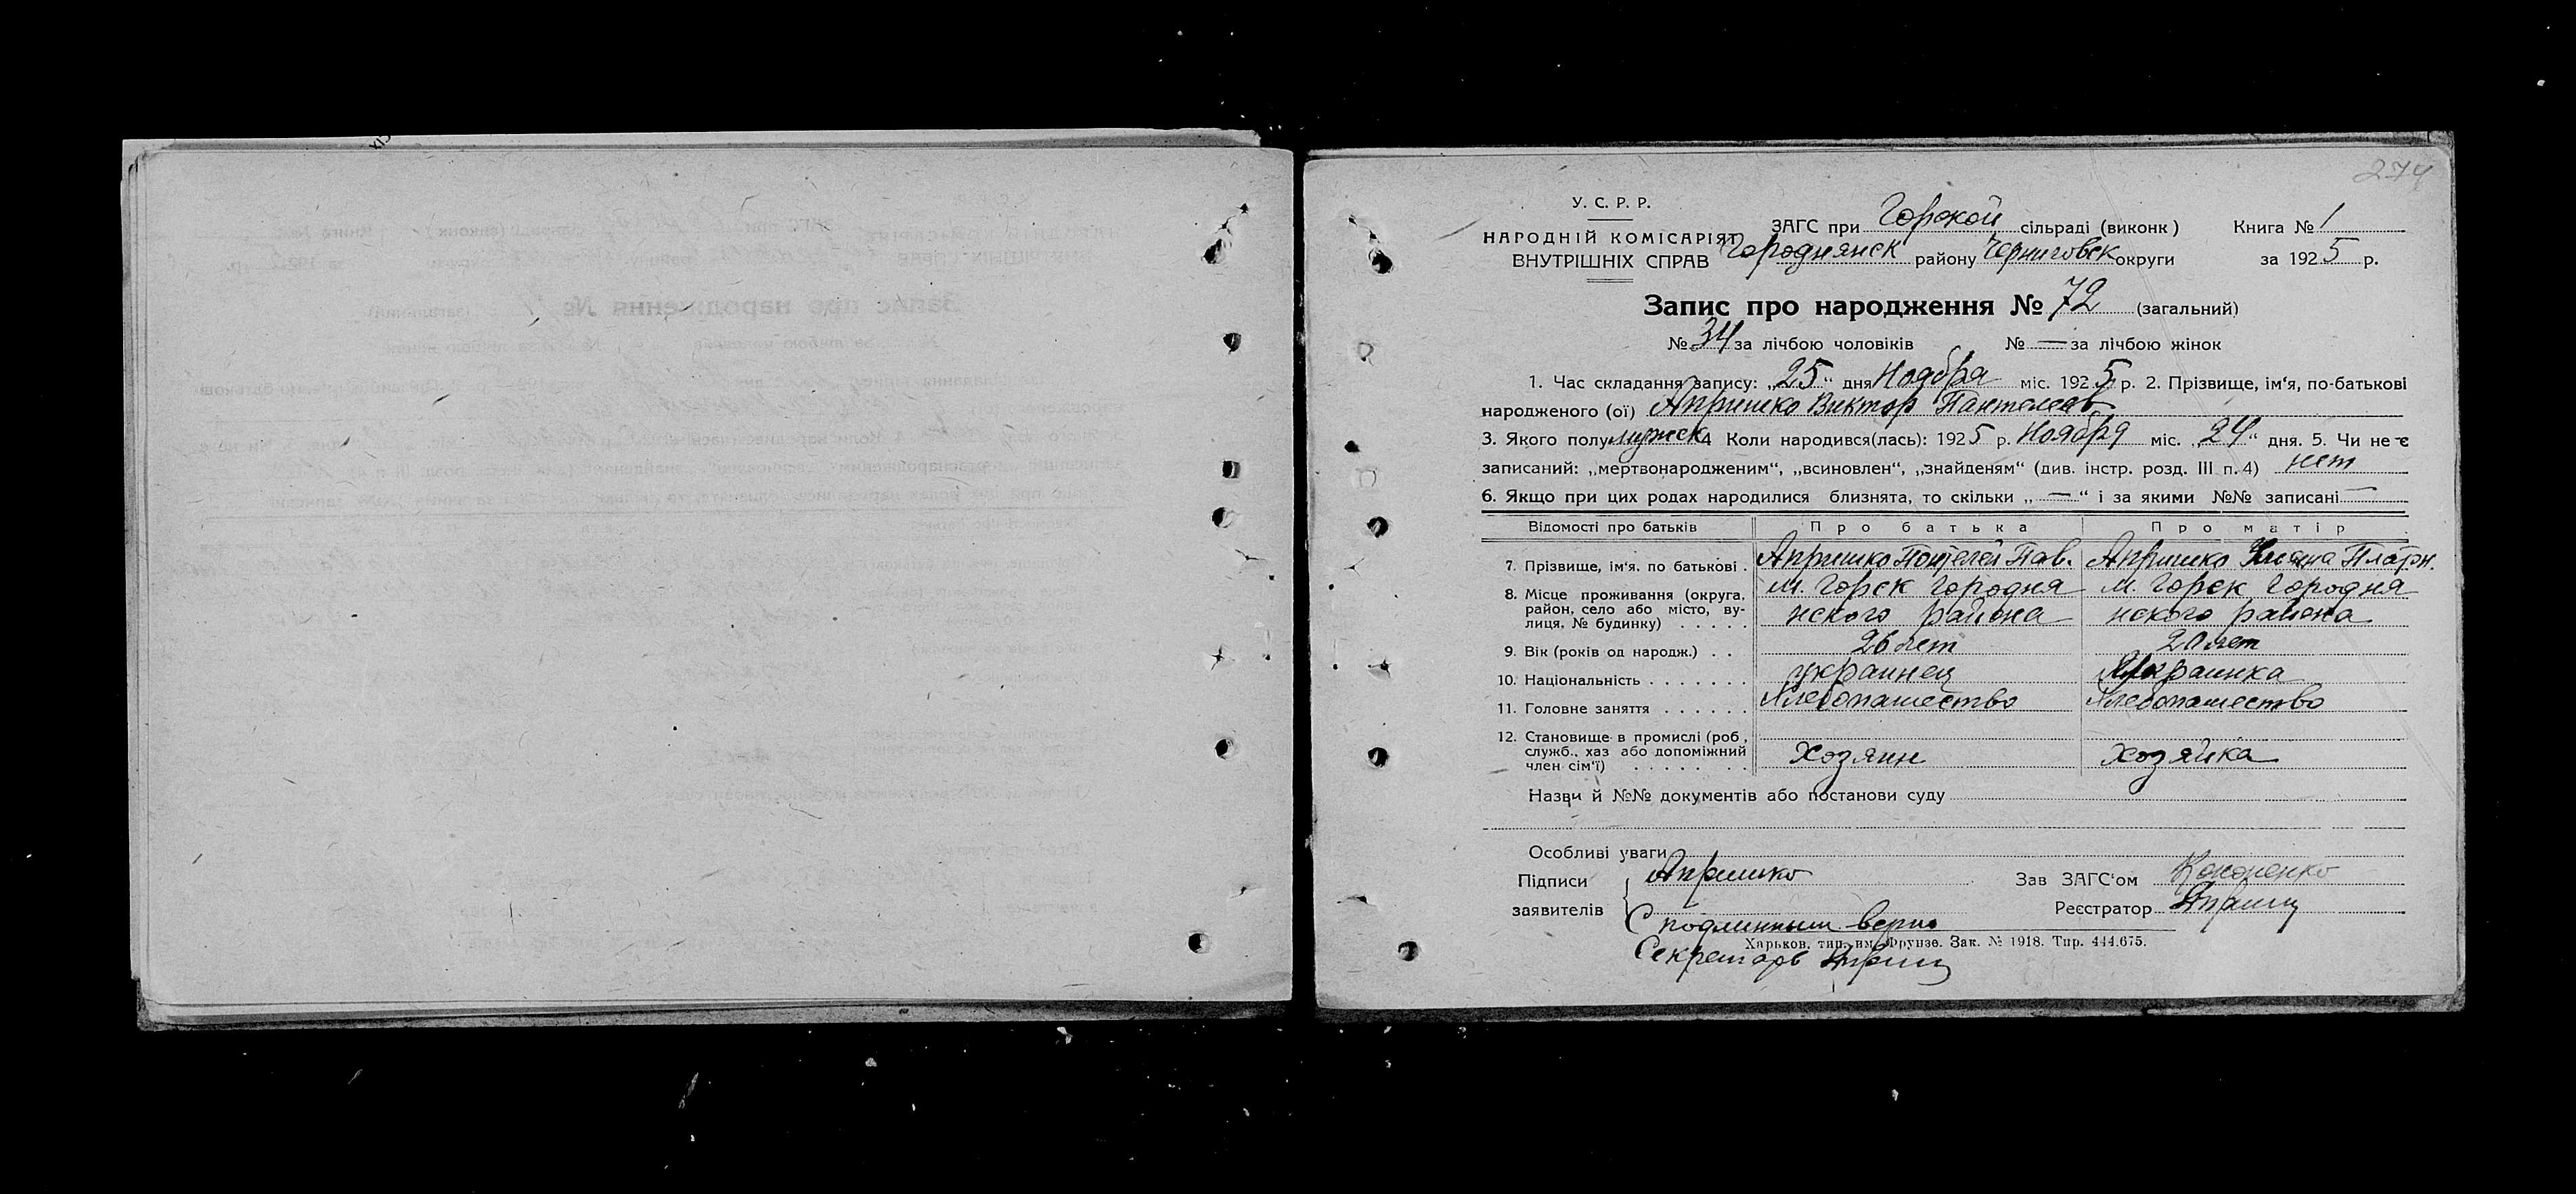 274
У. С. Р. Р.
НАРОДНІЙ КОМІСАРІЯТ
ВНУТРІШНІХ СПРАВ
ЗАГС при Горской сільраді (виконк) Книга № 1
Городнянск району Черниговск округи за 1925 р.
Запис про народження № 72 (загальний)
№ 34 за лічбою чоловіків № — за лічбою жінок
1. Час складання запису: „25" дня Ноября міс. 1925 р. 2. Прізвище, ім'я, по-батькові
народженого (ої) Апришко Виктор Пантелеев
3. Якого полу мужск 4 Коли народився(лась): 1925 р. Ноября міс. „24" дня. 5. Чи не є
записаний: „мертвонародженим", „всиновлен", „знайденям" (див. інстр. розд. III п. 4) нет
6. Якщо при цих родах народилися близнята, то скільки „—" і за якими №№ записані —
Відомості про батьків Про батька Про матір
7. Прізвище, ім'я, по батькові . Апришко Пав. Апришко Платон.
8. Місце проживання (округа, м. Горск Городня м. Горск Городня
район, село або місто, ву-
лиця, № будинку) . . . . . нского района нского района
9. Вік (років од народж.) . . 26 лет 20 лет
10. Національність . . . . . . . украинец Украинка
11. Головне заняття . . . . . . Хлебопашество Хлебопашество
12. Становище в промислі (роб,
служб., хаз або допоміжний
член сім'ї) . . . . . . . Хозяин Хозяйка
Назви й №№ документів або постанови суду
Особливі уваги
Підписи Апришко Зав ЗАГС'ом Кононенко
заявителів Реєстратор
С подлинным верно
Харьков, тип. им. Фрунзе. Зак. № 1918. Тир. 444.675.
Секретарь